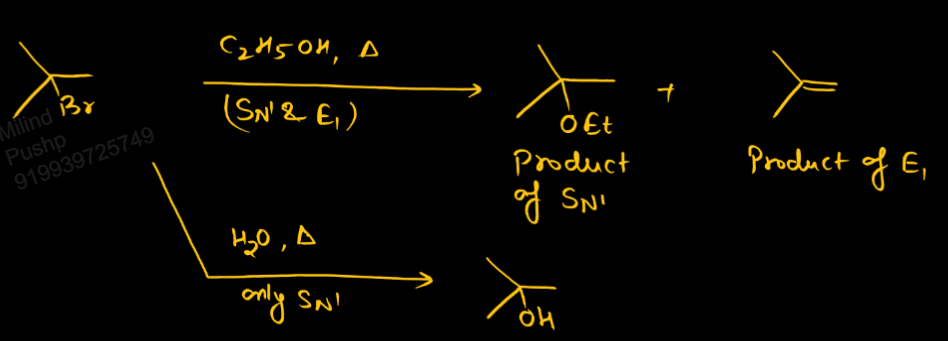 C₂H₅OH, Δ
(SN¹ & E₁)
Br
OEt
+
Product
of SN¹
Product of E₁
Milind
Pushp
919939725749
H₂O, Δ
only SN¹
OH